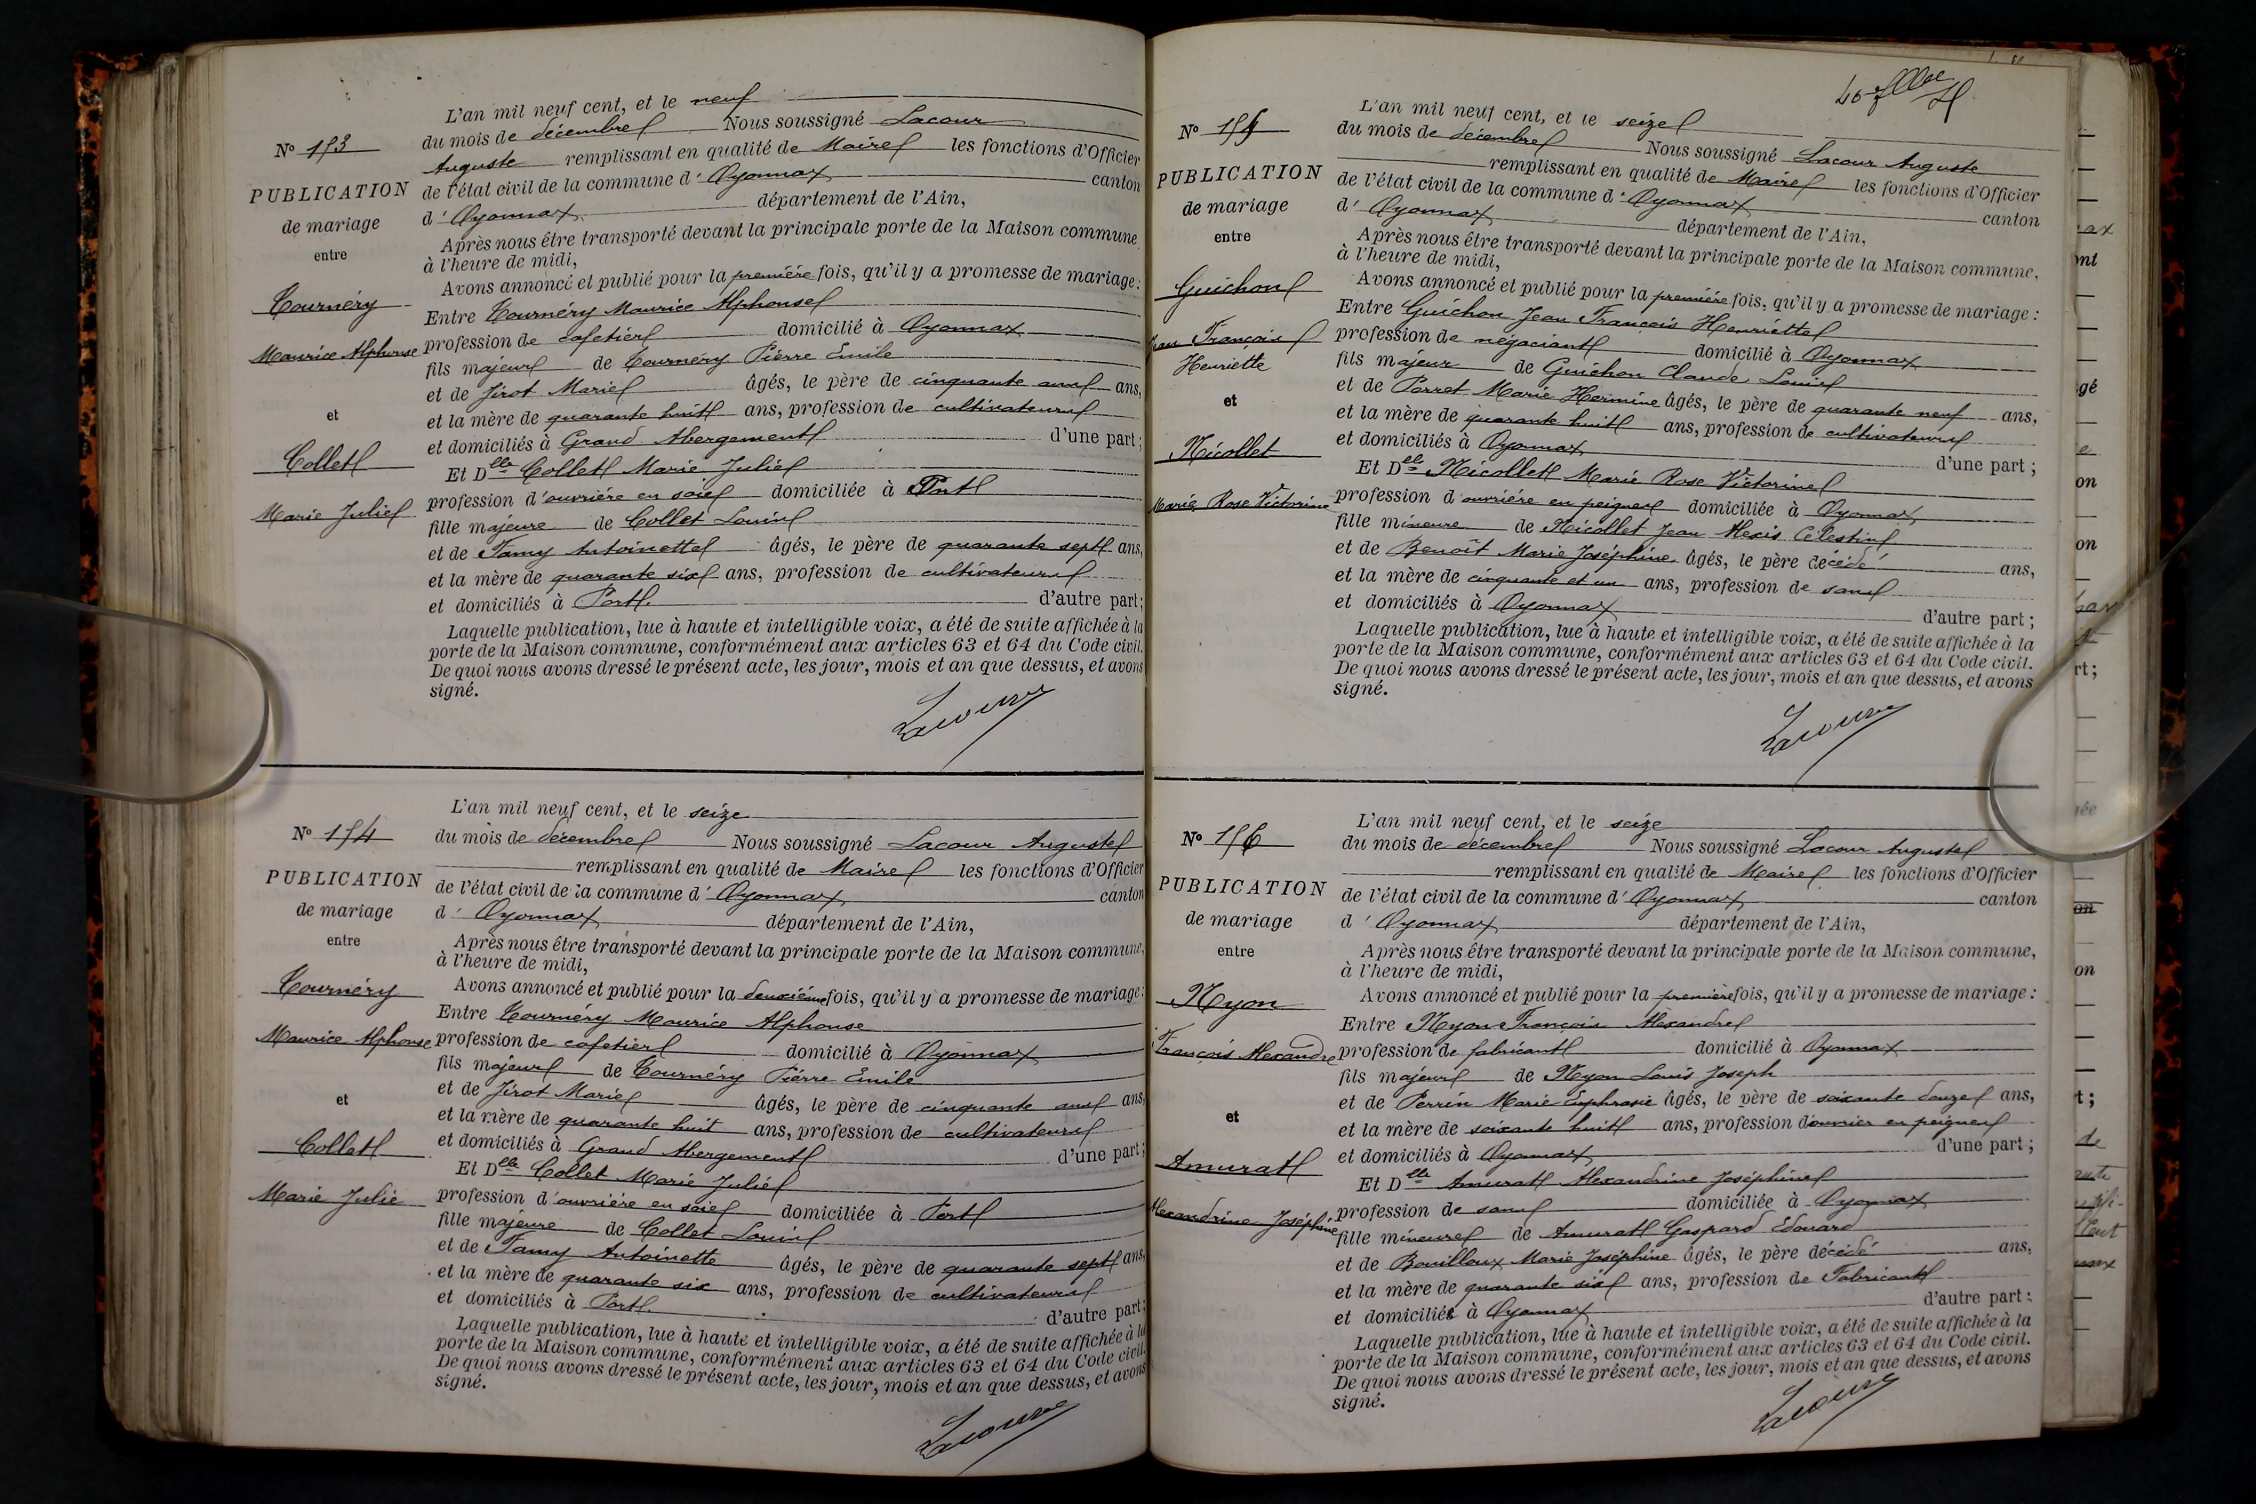 N° 153
PUBLICATION
de mariage
entre
Tournéry
Maurice Alphonse
et
Collet
Marie Julie
L'an mil neuf cent, et le neuf
du mois de décembre Nous soussigné Lacour
Auguste remplissant en qualité de Maire les fonctions d'Officier
de l'état civil de la commune d'Oyonnax canton
d'Oyonnax département de l'Ain,
Après nous être transporté devant la principale porte de la Maison commune
à l'heure de midi,
Avons annoncé et publié pour la première fois, qu'il y a promesse de mariage:
Entre Tournéry Maurice Alphonse
profession de cafetier domicilié à Oyonnax
fils majeur de Tournéry Pierre Emile
et de Jirot Marie âgés, le père de cinquante ans,
et la mère de quarante huit ans, profession de cultivateurs
et domiciliés à Grand Abergement d'une part;
Et Dlle Collet Marie Julie
profession d'ouvrière en soie domiciliée à Port
fille majeure de Collet Louis
et de Famy Antoinette âgés, le père de quarante sept ans,
et la mère de quarante six ans, profession de cultivateurs
et domiciliés à Port d'autre part;
Laquelle publication, lue à haute et intelligible voix, a été de suite affichée à la
porte de la Maison commune, conformément aux articles 63 et 64 du Code civil.
De quoi nous avons dressé le présent acte, les jour, mois et an que dessus, et avons
signé.
Lacour
N° 154
PUBLICATION
de mariage
entre
Tournéry
Maurice Alphonse
et
Collet
Marie Julie
L'an mil neuf cent, et le seize
du mois de décembre Nous soussigné Lacour Auguste
remplissant en qualité de Maire les fonctions d'Officier
de l'état civil de la commune d'Oyonnax canton
d'Oyonnax département de l'Ain,
Après nous être transporté devant la principale porte de la Maison commune,
à l'heure de midi,
Avons annoncé et publié pour la deuxième fois, qu'il y a promesse de mariage:
Entre Tournéry Maurice Alphonse
profession de cafetier domicilié à Oyonnax
fils majeur de Tournéry Pierre Emile
et de Jirot Marie âgés, le père de cinquante ans,
et la mère de quarante huit ans, profession de cultivateurs
et domiciliés à Grand Abergement d'une part;
Et Dlle Collet Marie Julie
profession d'ouvrière en soie domiciliée à Port
fille majeure de Collet Louis
et de Famy Antoinette âgés, le père de quarante sept ans,
et la mère de quarante six ans, profession de cultivateurs
et domiciliés à Port d'autre part;
Laquelle publication, lue à haute et intelligible voix, a été de suite affichée à la
porte de la Maison commune, conformément aux articles 63 et 64 du Code civil.
De quoi nous avons dressé le présent acte, les jour, mois et an que dessus, et avons
signé.
Lacour
N° 155
PUBLICATION
de mariage
entre
Guichon
Jean François
Henriette
et
Nicollet
Marie Rose Victorine
L'an mil neuf cent, et le seize
du mois de décembre Nous soussigné Lacour Auguste
remplissant en qualité de Maire les fonctions d'Officier
de l'état civil de la commune d'Oyonnax canton
d'Oyonnax département de l'Ain,
Après nous être transporté devant la principale porte de la Maison commune,
à l'heure de midi,
Avons annoncé et publié pour la première fois, qu'il y a promesse de mariage:
Entre Guichon Jean François Henriette
profession de négociant domicilié à Oyonnax
fils majeur de Guichon Claude Louis
et de Perret Marie Hermine âgés, le père de quarante neuf ans,
et la mère de quarante huit ans, profession de cultivateurs
et domiciliés à Oyonnax d'une part;
Et Dlle Nicollet Marie Rose Victorine
profession d'ouvrière en peignes domiciliée à Oyonnax
fille mineure de Nicollet Jean Alexis Célestin
et de Benoît Marie Joséphine âgés, le père décédé ans,
et la mère de cinquante et un ans, profession de sans
et domiciliés à Oyonnax d'autre part;
Laquelle publication, lue à haute et intelligible voix, a été de suite affichée à la
porte de la Maison commune, conformément aux articles 63 et 64 du Code civil.
De quoi nous avons dressé le présent acte, les jour, mois et an que dessus, et avons
signé.
Lacour
N° 156
PUBLICATION
de mariage
entre
Nyon
François Alexandre
et
Amurat
Alexandrine Joséphine
L'an mil neuf cent, et le seize
du mois de décembre Nous soussigné Lacour Auguste
remplissant en qualité de Maire les fonctions d'Officier
de l'état civil de la commune d'Oyonnax canton
d'Oyonnax département de l'Ain,
Après nous être transporté devant la principale porte de la Maison commune,
à l'heure de midi,
Avons annoncé et publié pour la première fois, qu'il y a promesse de mariage:
Entre Nyon François Alexandre
profession de fabricant domicilié à Oyonnax
fils majeur de Nyon Louis Joseph
et de Perrin Marie Euphrasie âgés, le père de soixante douze ans,
et la mère de soixante huit ans, profession d'ouvrier en peignes
et domiciliés à Oyonnax d'une part;
Et Dlle Amurat Alexandrine Joséphine
profession de sans domiciliée à Oyonnax
fille mineure de Amurat Gaspard Edouard
et de Bouilloux Marie Joséphine âgés, le père décédé ans,
et la mère de quarante six ans, profession de Fabricant
et domiciliée à Oyonnax d'autre part;
Laquelle publication, lue à haute et intelligible voix, a été de suite affichée à la
porte de la Maison commune, conformément aux articles 63 et 64 du Code civil.
De quoi nous avons dressé le présent acte, les jour, mois et an que dessus, et avons
signé.
Lacour